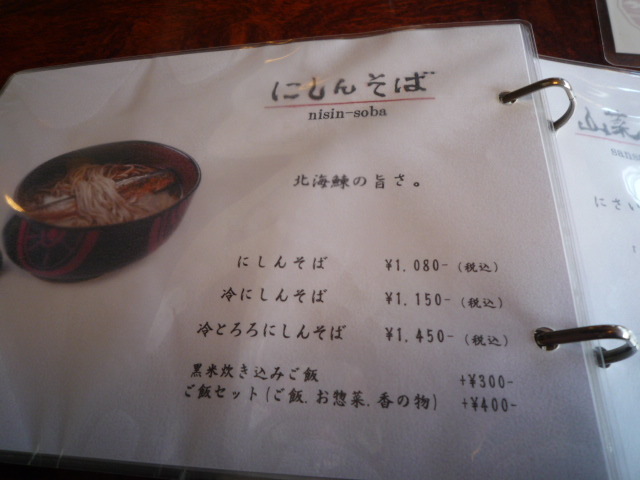 にしんそば
nisin-soba
北海鰊の旨さ。
にしんそば ¥1,080-（税込）
冷にしんそば ¥1,150-（税込）
冷とろろにしんそば ¥1,450-（税込）
黒米炊き込みご飯 +¥300-
ご飯セット(ご飯.お惣菜.香の物) +¥400-